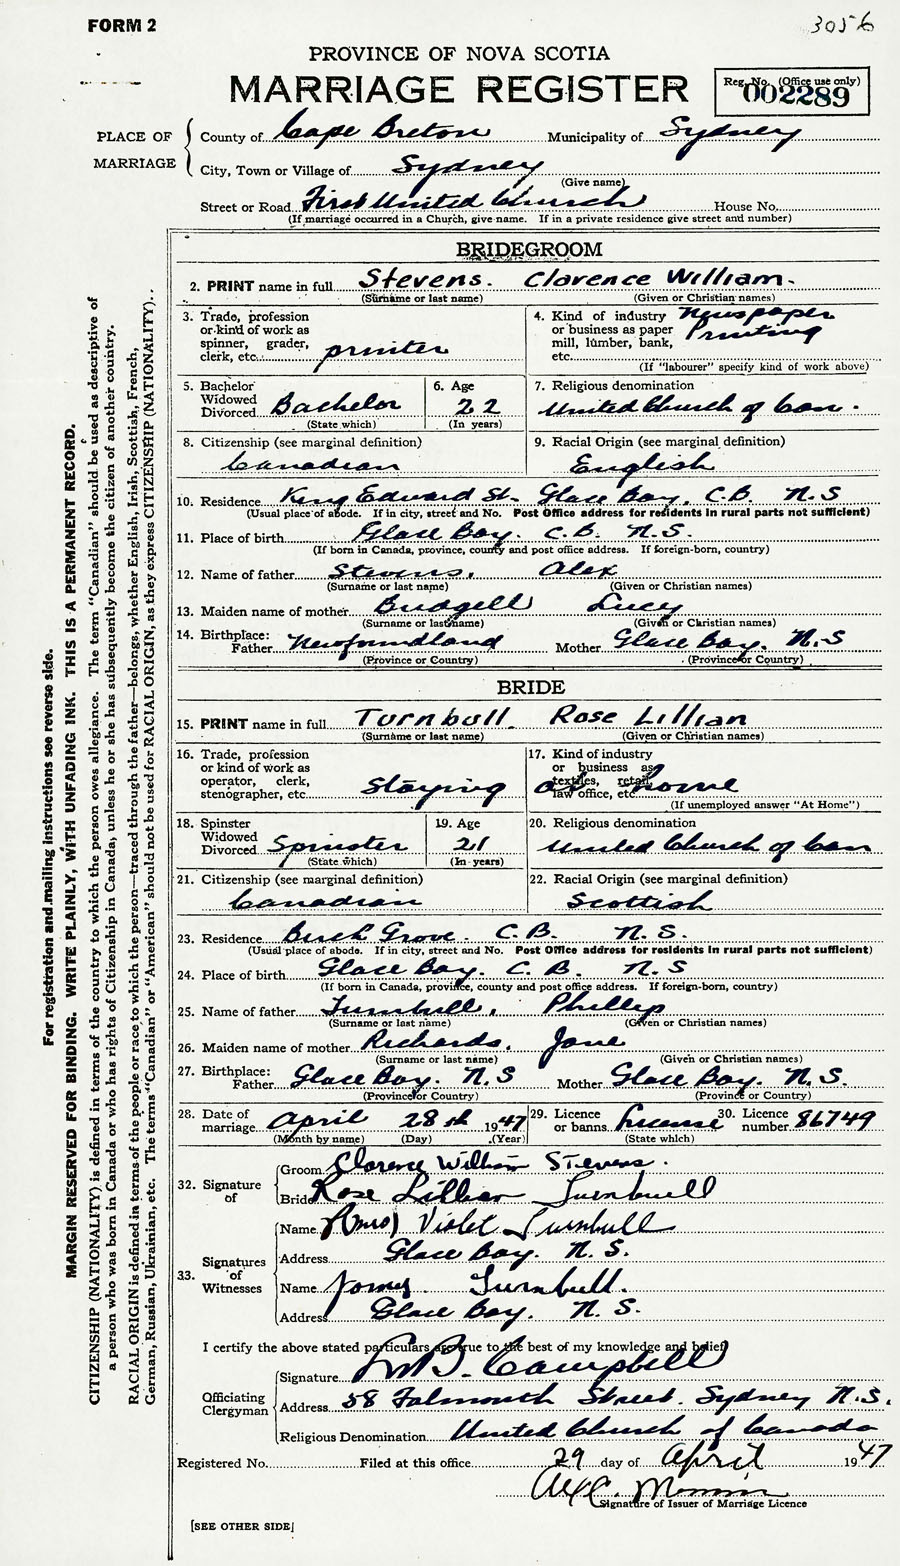 FORM 2
3056
PROVINCE OF NOVA SCOTIA
MARRIAGE REGISTER
Reg. No. (Office use only)
002289
PLACE OF MARRIAGE
County of Cape Breton Municipality of Sydney
City, Town or Village of Sydney
(Give name)
Street or Road First United Church House No.
(If marriage occurred in a Church, give name. If in a private residence give street and number)
BRIDEGROOM
2. PRINT name in full Stevens. Clarence William.
(Surname or last name) (Given or Christian names)
3. Trade, profession or kind of work as spinner, grader, clerk, etc. printer
4. Kind of industry or business as paper mill, lumber, bank, etc. Newspaper Printing
(If "labourer" specify kind of work above)
5. Bachelor Widowed Divorced Bachelor
(State which)
6. Age 22
(In years)
7. Religious denomination
United Church of Can.
8. Citizenship (see marginal definition)
Canadian
9. Racial Origin (see marginal definition)
English
10. Residence King Edward St. Glace Bay, C.B. N.S
(Usual place of abode. If in city, street and No. Post Office address for residents in rural parts not sufficient)
11. Place of birth Glace Bay. C.B. N.S.
(If born in Canada, province, county and post office address. If foreign-born, country)
12. Name of father Stevens, Alex
(Surname or last name) (Given or Christian names)
13. Maiden name of mother Budgell Lucy
(Surname or last name) (Given or Christian names)
14. Birthplace: Father Newfoundland Mother Glace Bay. N.S
(Province or Country) (Province or Country)
BRIDE
15. PRINT name in full Turnbull. Rose Lillian
(Surname or last name) (Given or Christian names)
16. Trade, profession or kind of work as operator, clerk, stenographer, etc. Staying
17. Kind of industry or business as textiles, retail, law office, etc. at home
(If unemployed answer "At Home")
18. Spinster Widowed Divorced Spinster
(State which)
19. Age 21
(In years)
20. Religious denomination
United Church of Can
21. Citizenship (see marginal definition)
Canadian
22. Racial Origin (see marginal definition)
Scottish
23. Residence Birch Grove. C.B. N.S.
(Usual place of abode. If in city, street and No. Post Office address for residents in rural parts not sufficient)
24. Place of birth Glace Bay. C.B. N.S
(If born in Canada, province, county and post office address. If foreign-born, country)
25. Name of father Turnbull, Phillip
(Surname or last name) (Given or Christian names)
26. Maiden name of mother Richards, Jane
(Surname or last name) (Given or Christian names)
27. Birthplace: Father Glace Bay. N.S Mother Glace Bay. N.S.
(Province or Country) (Province or Country)
28. Date of marriage April 28th 1947
(Month by name) (Day) (Year)
29. Licence or banns. License
(State which)
30. Licence number 86749
32. Signature of
Groom Clarence William Stevens.
Bride Rose Lillian Turnbull
33. Signatures of Witnesses
Name (Mrs) Violet Turnbull
Address Glace Bay. N.S.
Name James Turnbull.
Address Glace Bay N.S.
I certify the above stated particulars are true to the best of my knowledge and belief
Officiating Clergyman
Signature Campbell
Address 58 Falmouth Street. Sydney N.S.
Religious Denomination United Church of Canada
Registered No. Filed at this office 29 day of April 1947
Signature of Issuer of Marriage Licence
[SEE OTHER SIDE]
For registration and mailing instructions see reverse side.
MARGIN RESERVED FOR BINDING. WRITE PLAINLY, WITH UNFADING INK. THIS IS A PERMANENT RECORD.
CITIZENSHIP (NATIONALITY) is defined in terms of the country to which the person owes allegiance. The term "Canadian" should be used as descriptive of
a person who was born in Canada or who has rights of Citizenship in Canada, unless he or she has subsequently become the citizen of another country.
RACIAL ORIGIN is defined in terms of the people or race to which the person—traced through the father—belongs, whether English, Irish, Scottish, French,
German, Russian, Ukrainian, etc. The terms "Canadian" or "American" should not be used for RACIAL ORIGIN, as they express CITIZENSHIP (NATIONALITY).